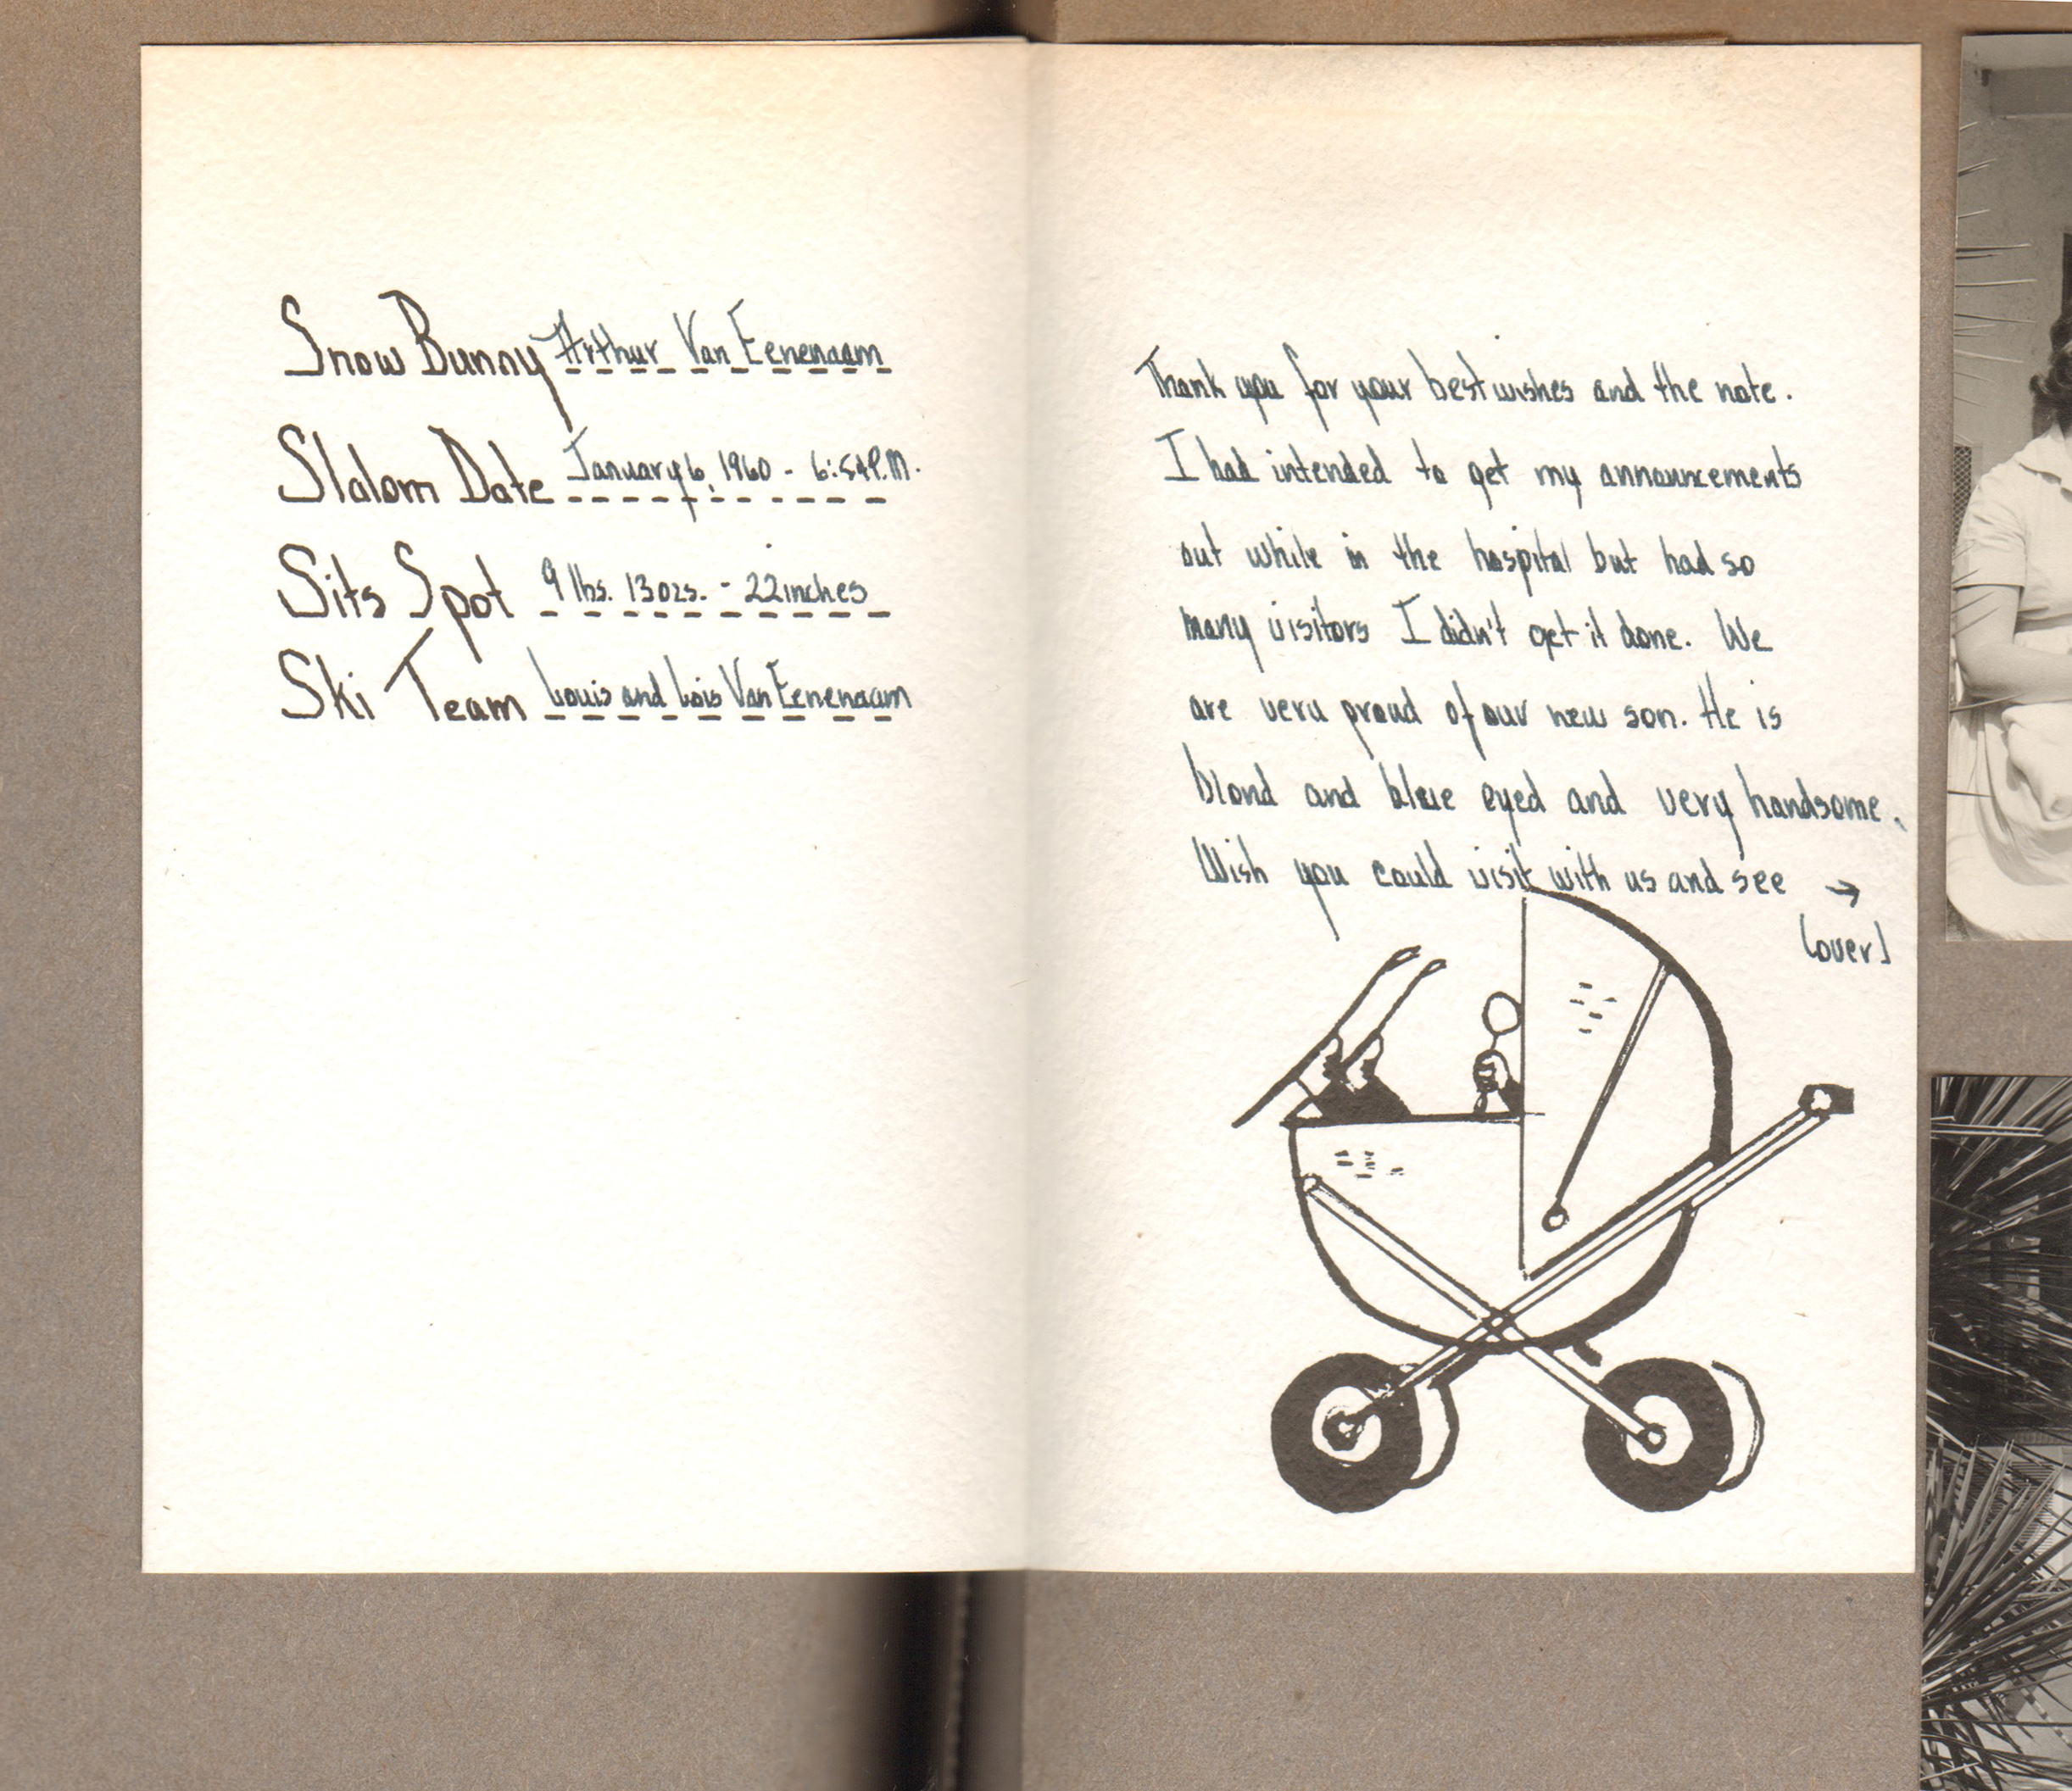 Snow Bunny Arthur Van Eenenaam
Slalom Date January 6, 1960 - 6:54 P.M.
Sits Spot 9 lbs. 13 ozs. - 22 inches
Ski Team Louis and Lois Van Eenenaam
Thank you for your best wishes and the note.
I had intended to get my announcements
out while in the hospital but had so
many visitors I didn't get it done. We
are very proud of our new son. He is
blond and blue eyed and very handsome.
Wish you could visit with us and see →
(over)